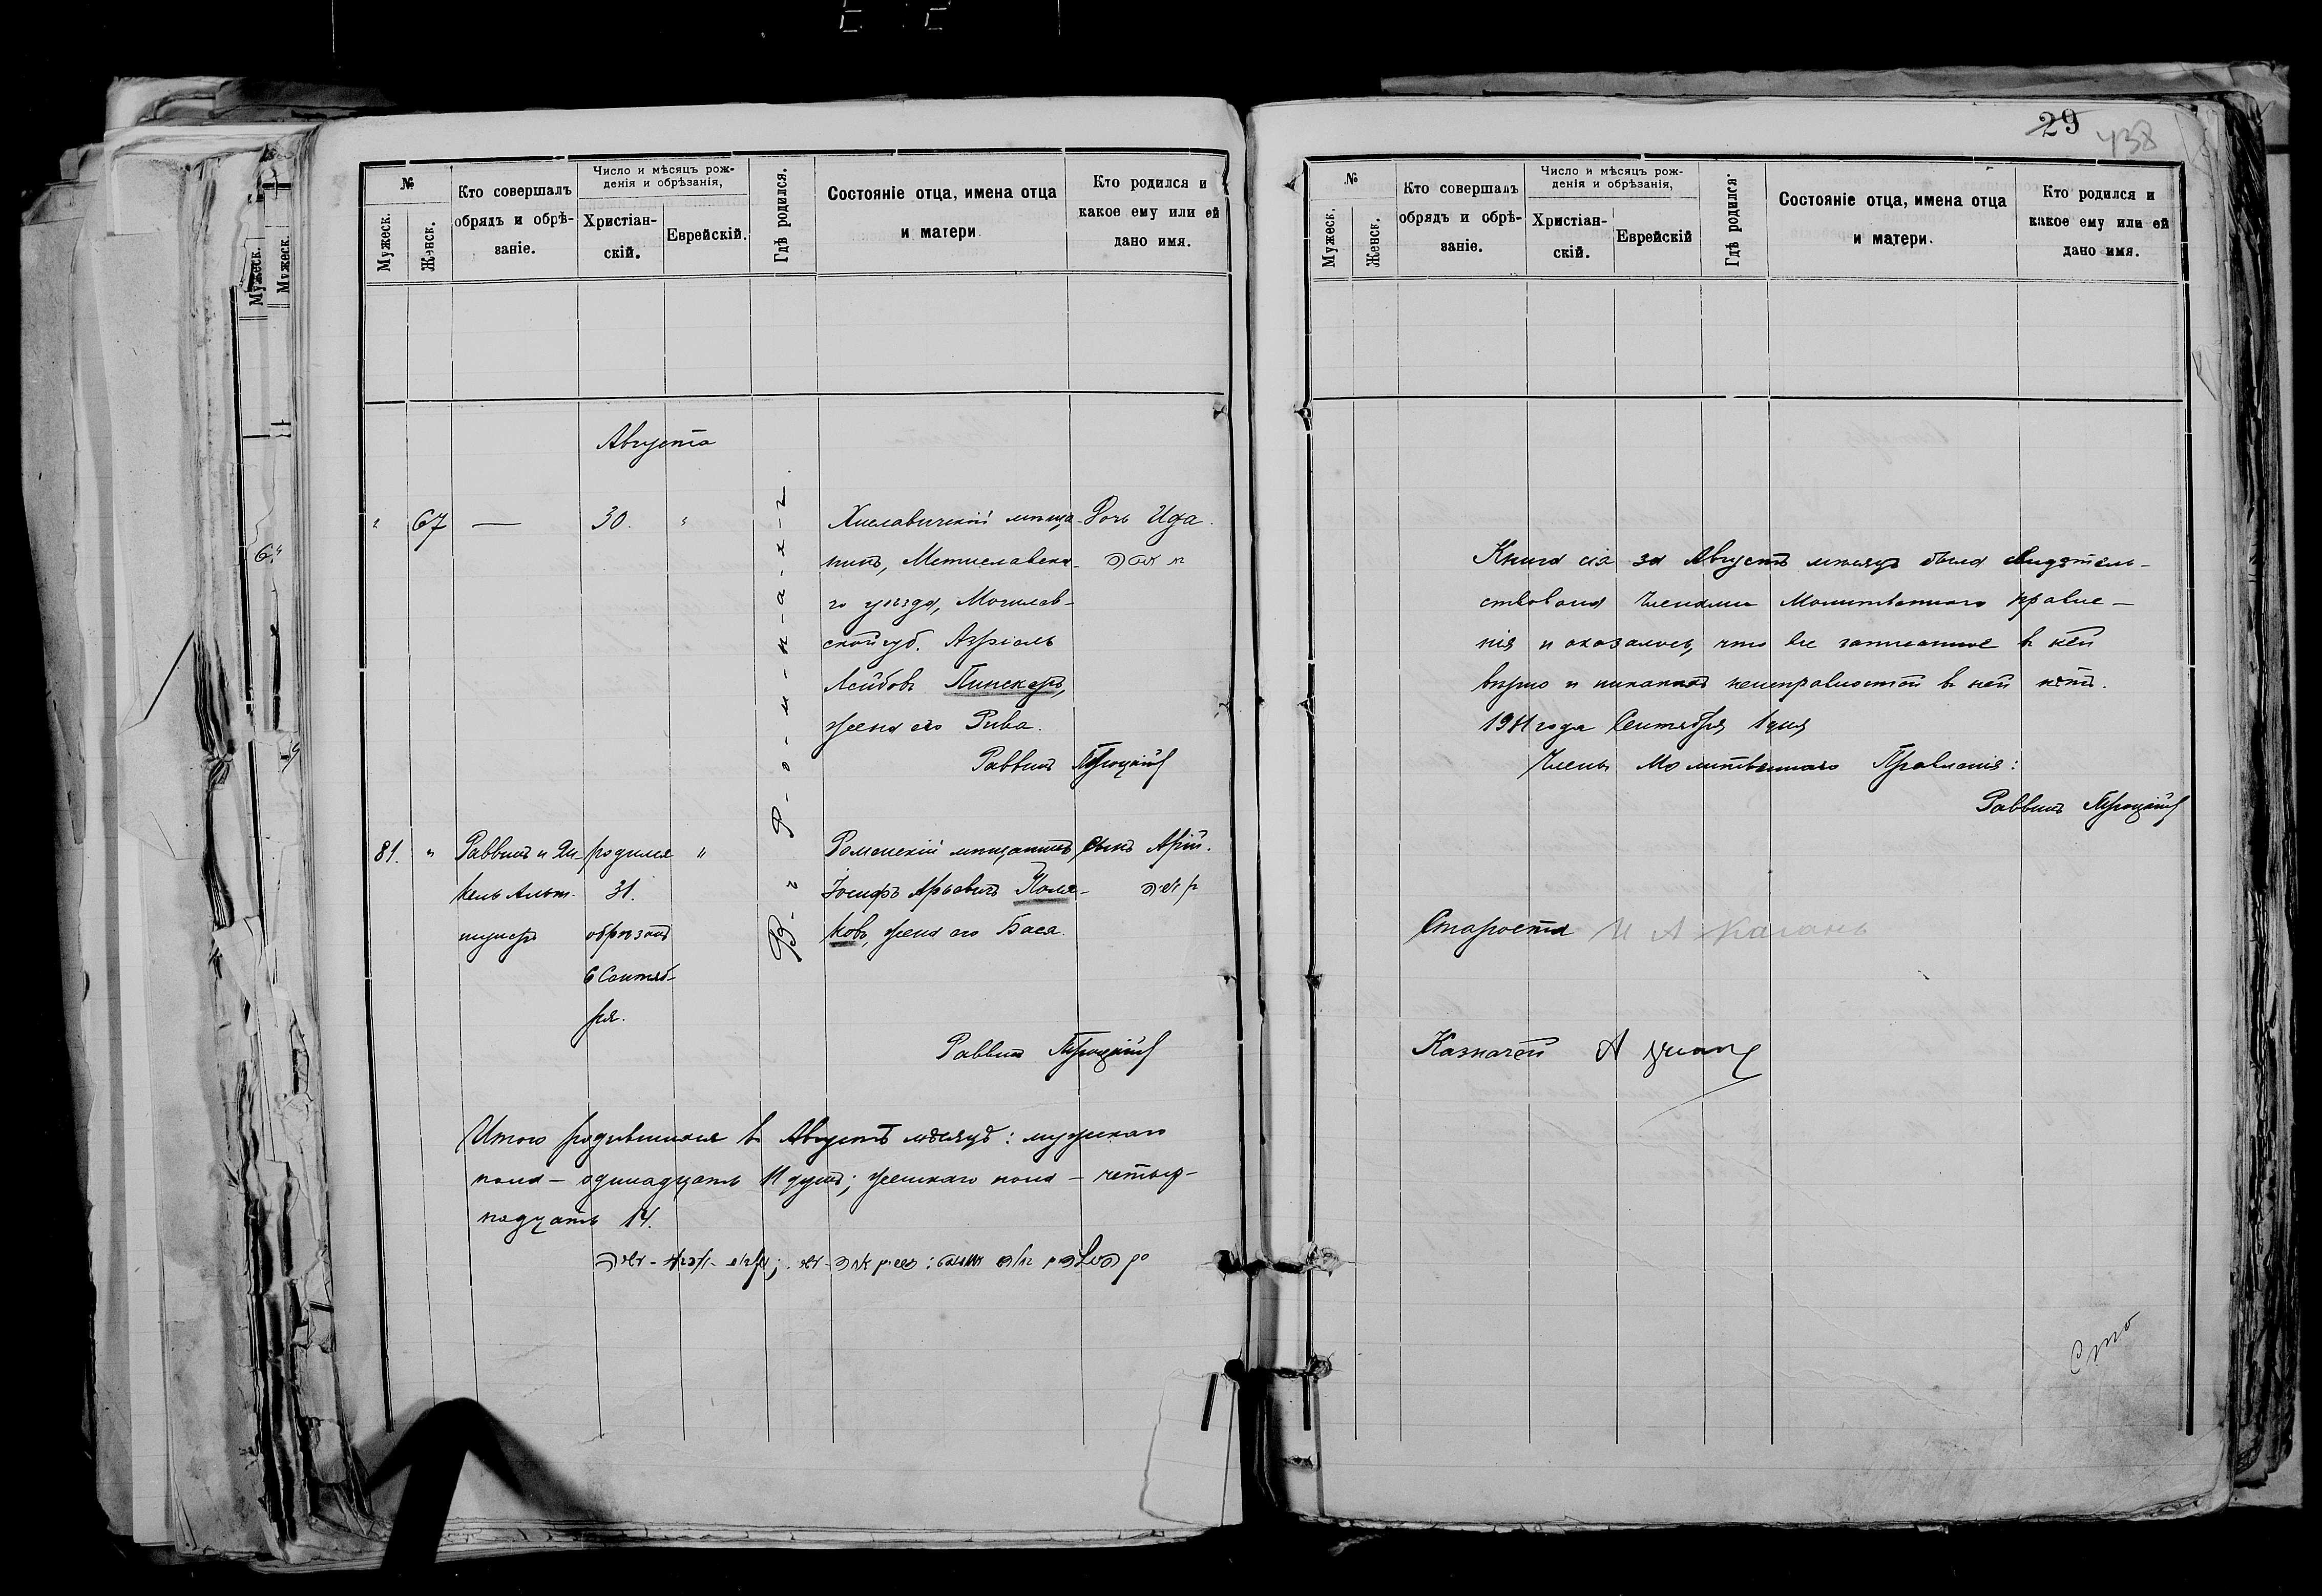 №
Мужеск.
Женск.
Кто совершалъ
обрядъ и обрѣ-
заніе.
Число и мѣсяцъ рож-
денія и обрѣзанія,
Христіан-
скій.
Еврейскій.
Гдѣ родился.
Состояніе отца, имена отца
и матери
Кто родился и
какое ему или ей
дано имя.
Августа
67
—
30.
"
Хиславичскій мѣща-
нинъ, Мстиславска-
го уѣзда, Могилев-
ской губ. Азріель
Лейбовъ Пинскеръ,
жена его Рива.
Дочь Ида.
Раввинъ
В-ъ Р-о-м-н-а-х-ъ.
81.
"
Раввинъ и Ди-
кель Альт-
шулеръ
родился
31.
обрѣзанъ
6 Сентяб-
ря.
"
Роменскій мѣщанинъ
Іосифъ Арьевичъ Поля-
ковъ, жена его Бася.
Сынъ Арій.
Раввинъ
Итого родившихся въ Августѣ мѣсяцѣ: мужескаго
пола — одинадцать 11 душъ; женскаго пола — четыр-
надцать 14.
29
438
№
Мужеск.
Женск.
Кто совершалъ
обрядъ и обрѣ-
заніе.
Число и мѣсяцъ рож-
денія и обрѣзанія,
Христіан-
скій.
Еврейскій
Гдѣ родился.
Состояніе отца, имена отца
и матери.
Кто родился и
какое ему или ей
дано имя.
Книга сія за Августъ мѣсяцъ была свидѣтель-
ствована членами Молитвеннаго правле-
нія и оказалось, что все записанное въ ней
вѣрно и никакихъ неисправностей въ ней нѣтъ.
1911 года Сентября 1 дня
Члены Молитвеннаго Правленія:
Раввинъ
Староста И А Каганъ
Казначей А